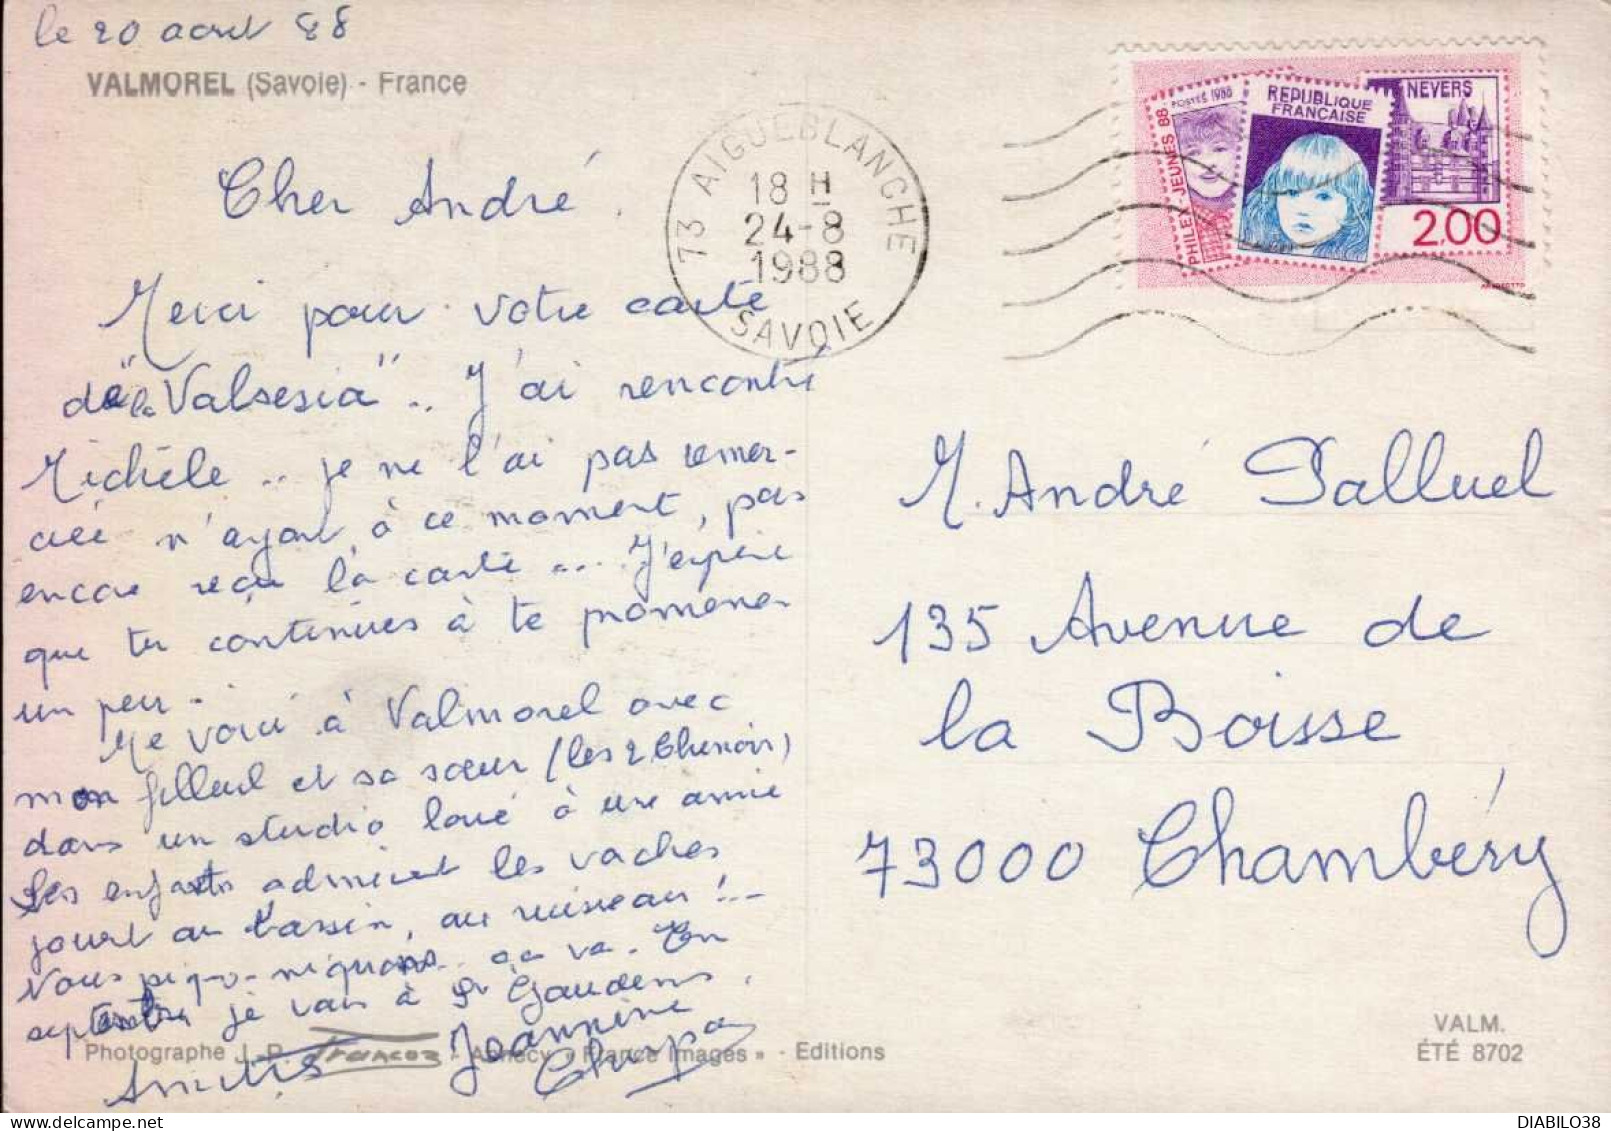 le 20 aout 88
VALMOREL (Savoie) - France
Cher André.
Merci pour votre carte
de "la Valsesia".. J'ai rencontré
Michèle .. je ne l'ai pas remer-
ciée n'ayant, à ce moment, pas
encore reçu la carte .... J'espère
que tu continues à te promener
un peu.
Me voici à Valmorel avec
mon filleul et sa sœur (les 2
dans un studio loué à une amie
Les enfants admirent les vaches
jouent au bassin, au ruisseau !..
Nous pique-niquons.. ça va. En
septembre je vais à St Gaudens.
Amitiés Jeannine
Photographe J. P. - Annecy « France Images » - Editions
73 AIGUEBLANCHE
18 H
24-8
1988
SAVOIE
PHILEX-JEUNES 88
POSTES 1988
REPUBLIQUE
FRANÇAISE
NEVERS
2,00
M. André Palluel
135 Avenue de
la Boisse
73000 Chambéry
VALM.
ÉTÉ 8702
DIABILO38